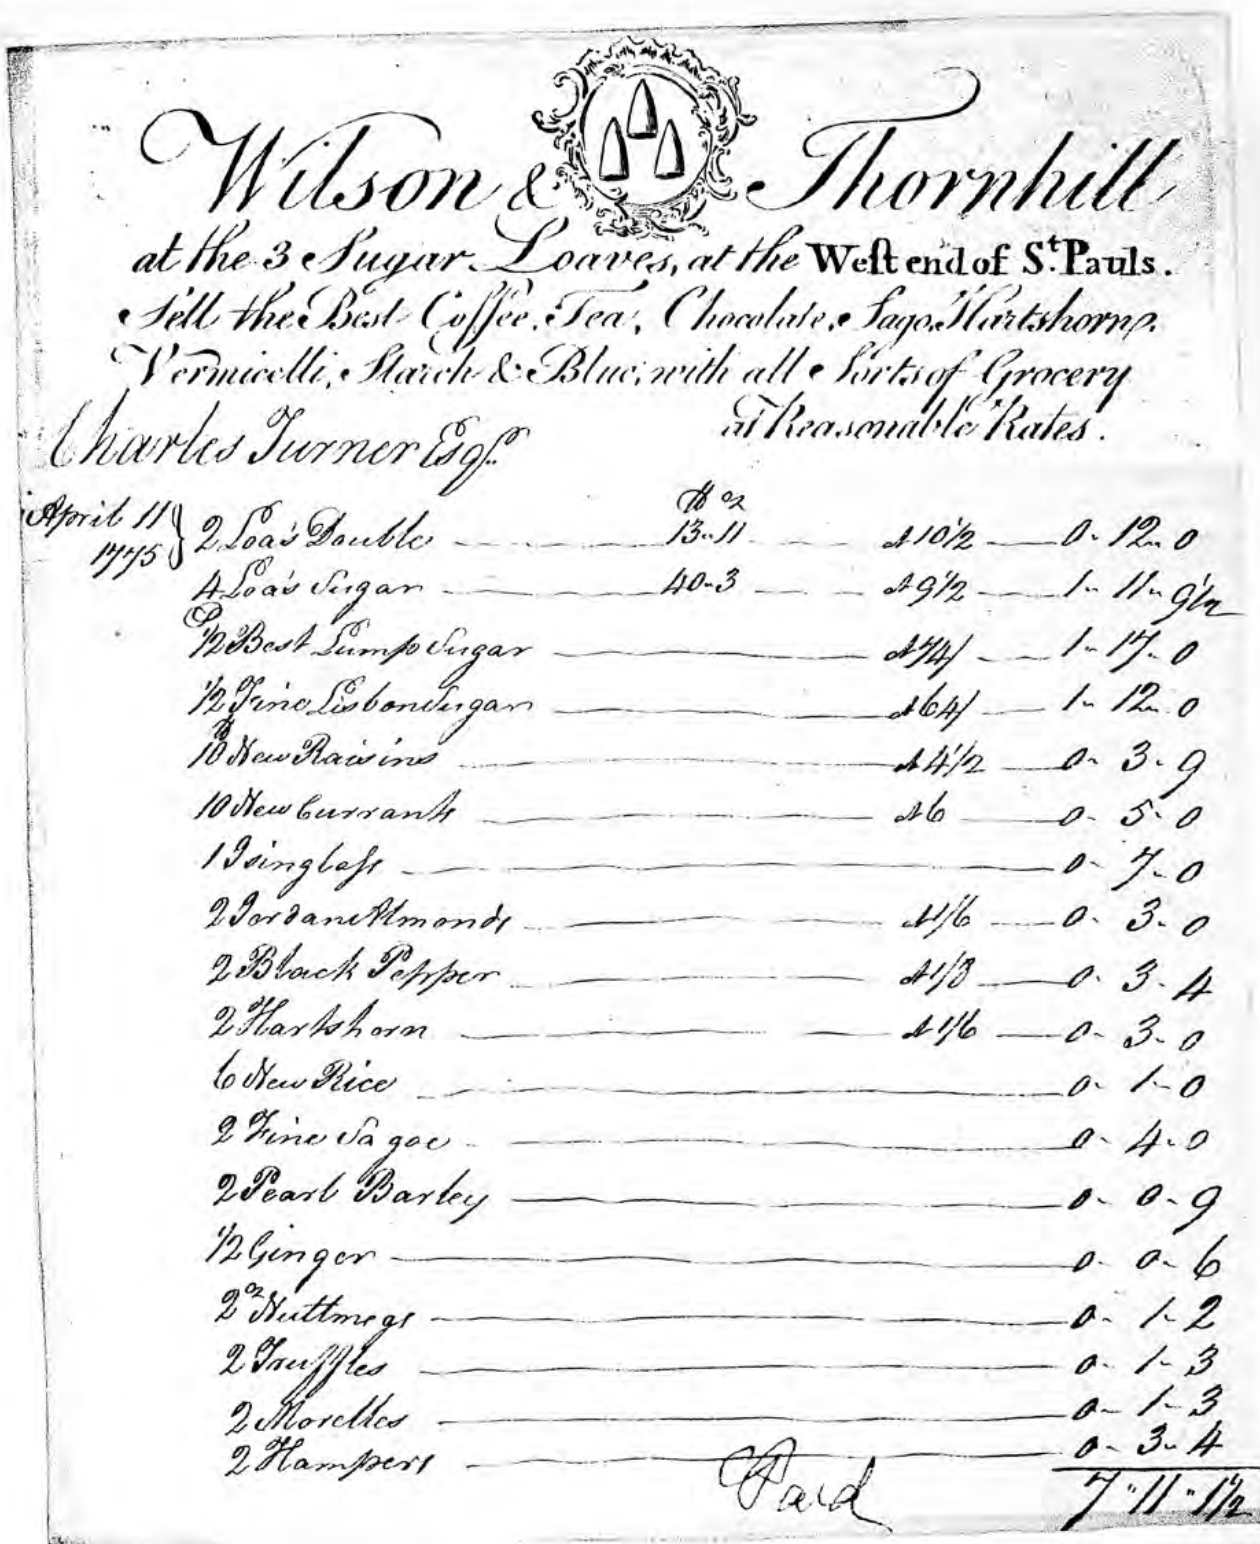 Wilson & Thornhill
at the 3 Sugar Loaves, at the West end of St. Pauls.
Sell the Best Coffee, Tea, Chocolate, Sago, Hartshorn,
Vermicelli, Starch & Blue, with all Sorts of Grocery
at Reasonable Rates.
Charles Turner Esqr.
April 11 1775
lb oz
2 Loa's Double 13-11 At 10 1/2 0-12-0
4 Loa's Sugar 40-3 At 9 1/2 1-11-9 1/2
1/2 Best Lump Sugar At 74/ 1-17-0
1/2 Fine Lisbon Sugar At 64/ 1-12-0
10 New Raisins At 4 1/2 0-3-9
10 New Currants At 6 0-5-0
1 Isinglass 0-7-0
2 Jordan Almonds At 1/6 0-3-0
2 Black Pepper At 1/8 0-3-4
2 Hartshorn At 1/6 0-3-0
6 New Rice 0-1-0
2 Fine Sagoe 0-4-0
2 Pearl Barley 0-0-9
1/2 Ginger 0-0-6
2 oz Nuttmegs 0-1-2
2 Truffles 0-1-3
2 Morelles 0-1-3
2 Hampers 0-3-4
Paid 7"11"1 1/2